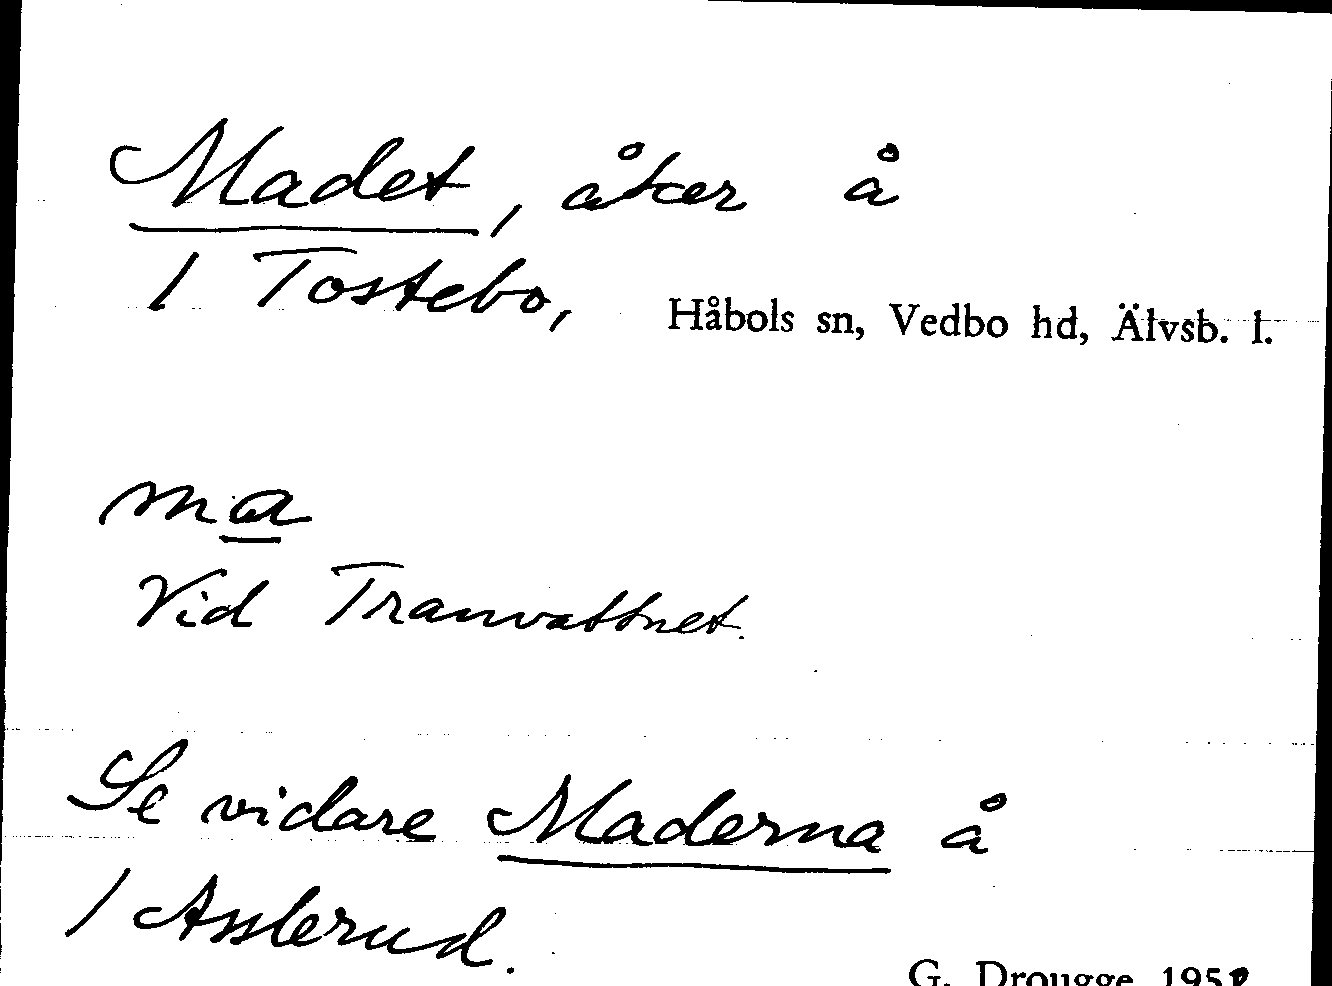 Madet, åker å
1 Tostebo, Håbols sn, Vedbo hd, Älvsb. l.
ma
Vid Tranvattnet.
Se vidare Maderna å
1 Asslerud.
G. Drougge